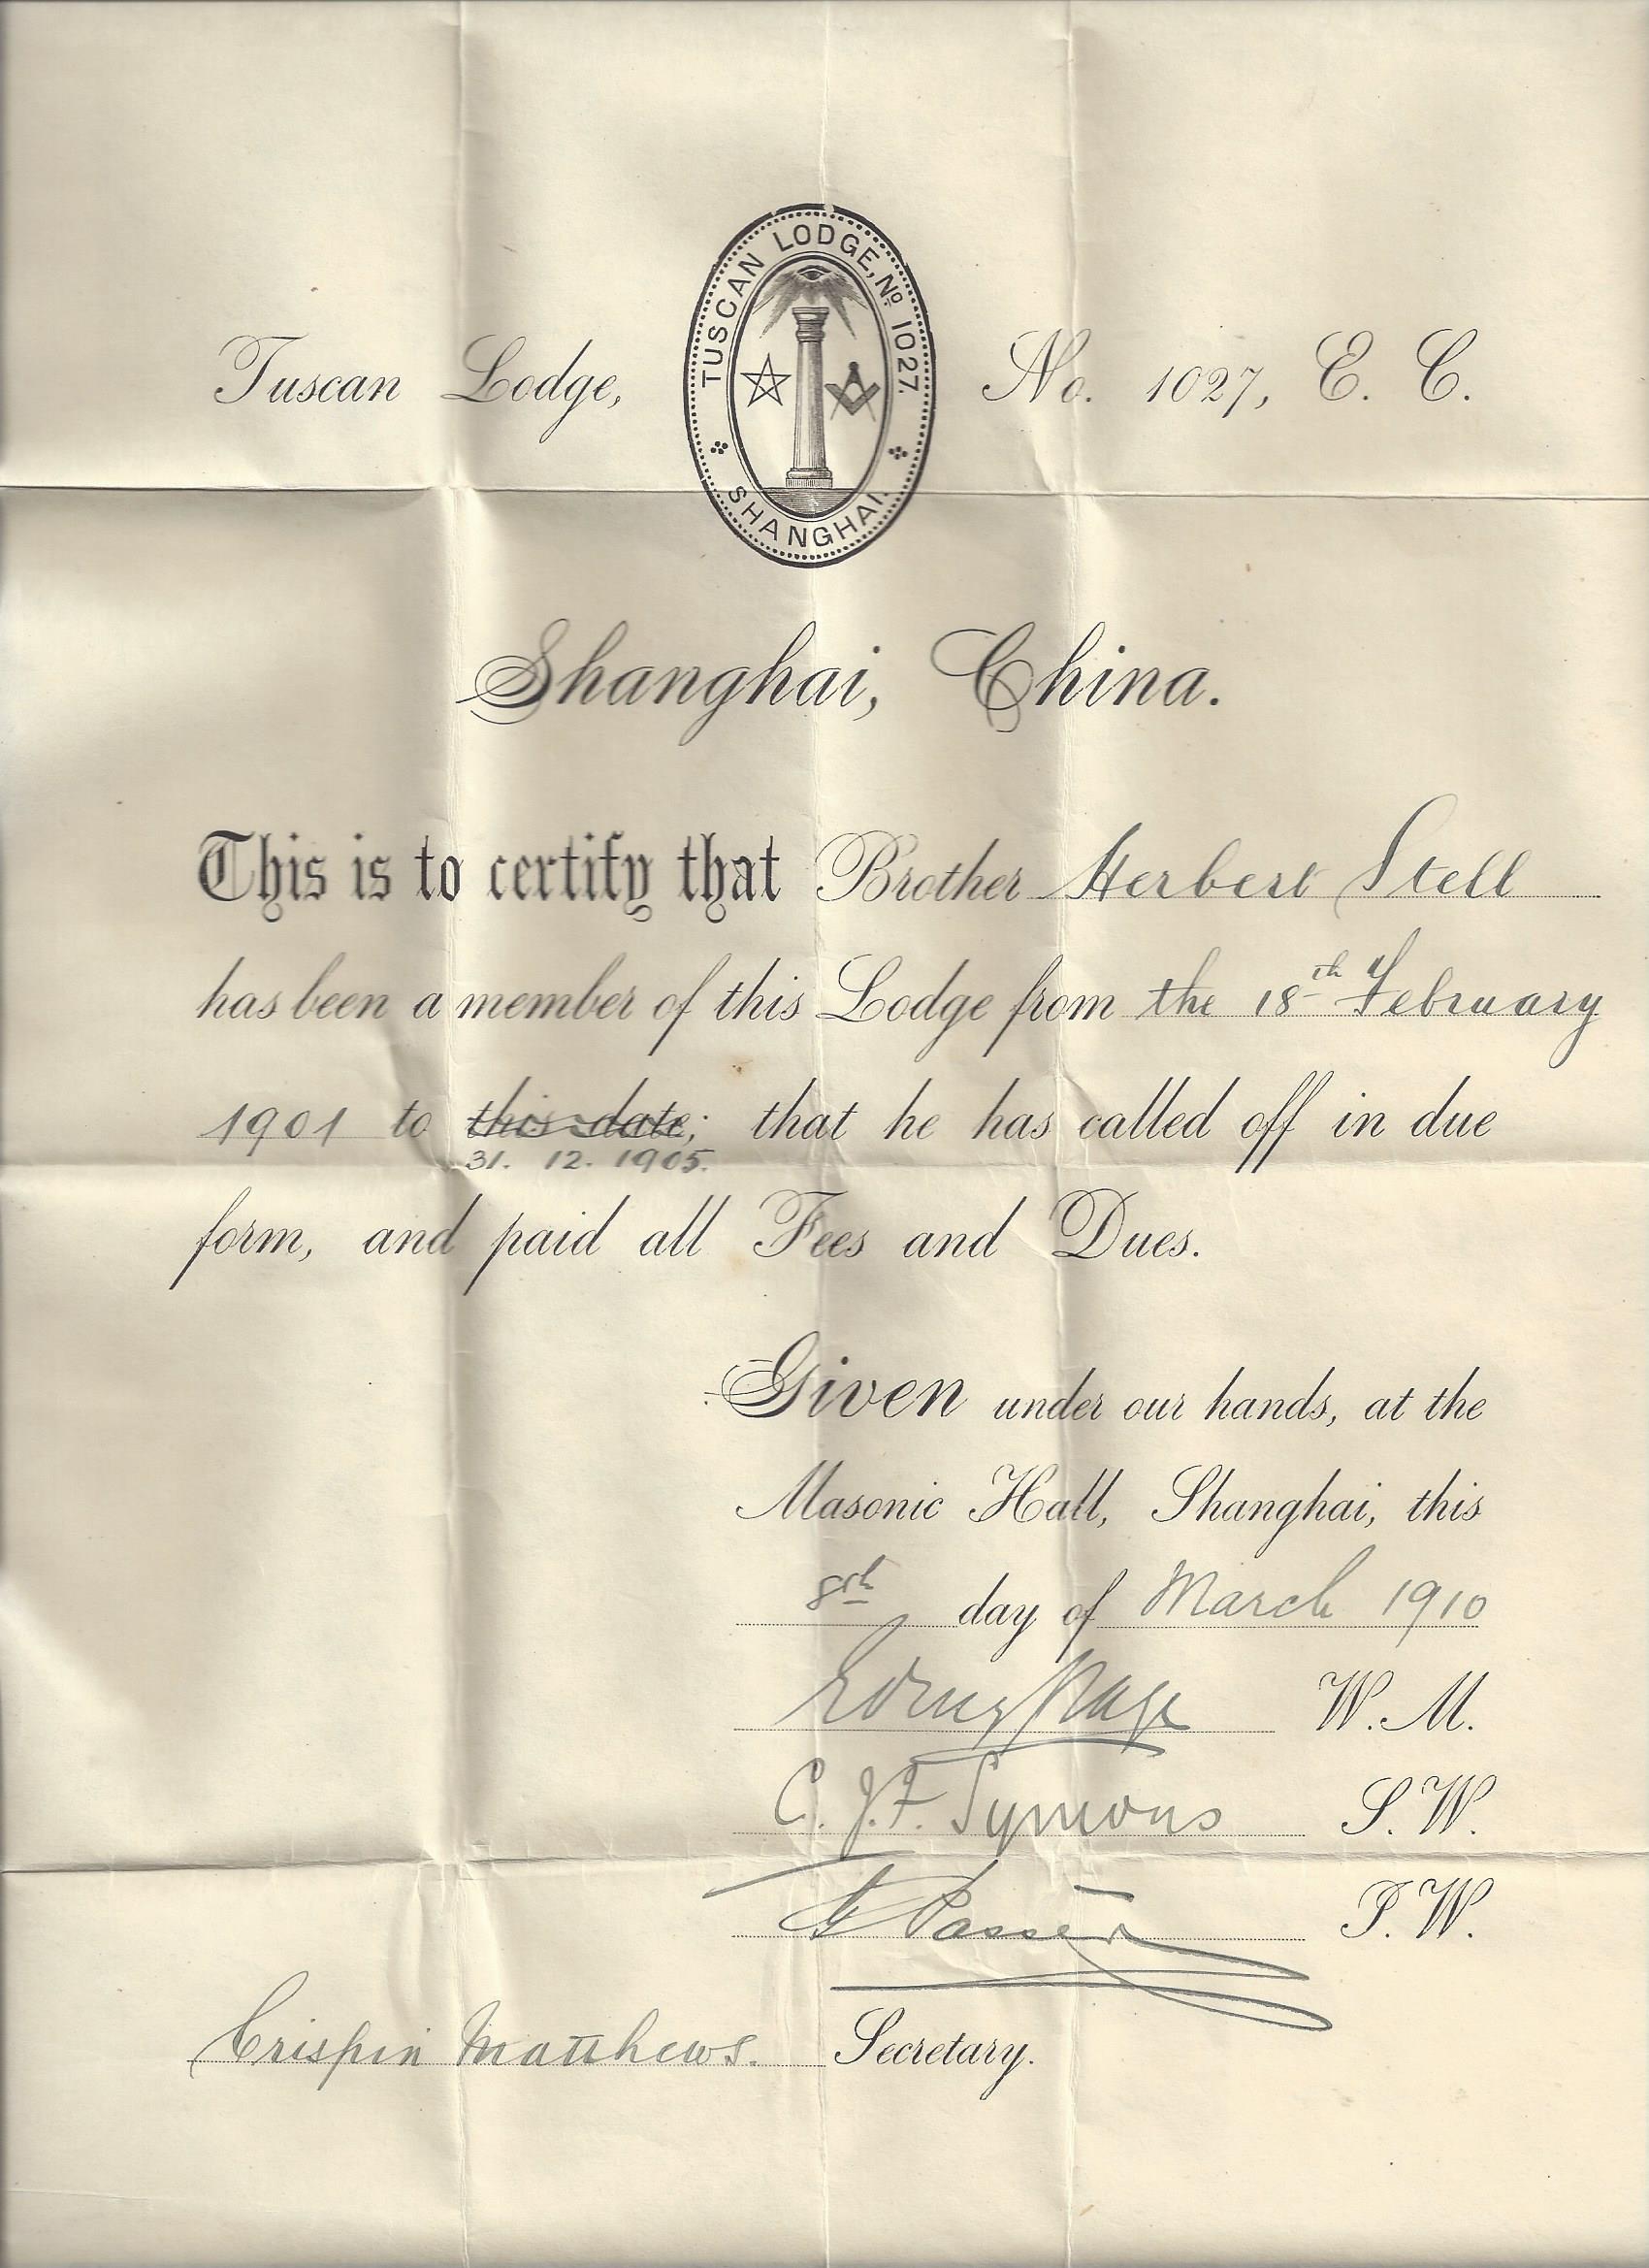 TUSCAN LODGE, No. 1027.
SHANGHAI.
Tuscan Lodge, No. 1027, E. C.
Shanghai, China.
This is to certify that Brother Herbert Stell
has been a member of this Lodge from the 18th February
1901 to this date; that he has called off in due
31. 12. 1905.
form, and paid all Fees and Dues.
Given under our hands, at the
Masonic Hall, Shanghai, this
8th day of March 1910
W. M.
C. J. F. Symons S. W.
J. W.
Crispin Matthews. Secretary.